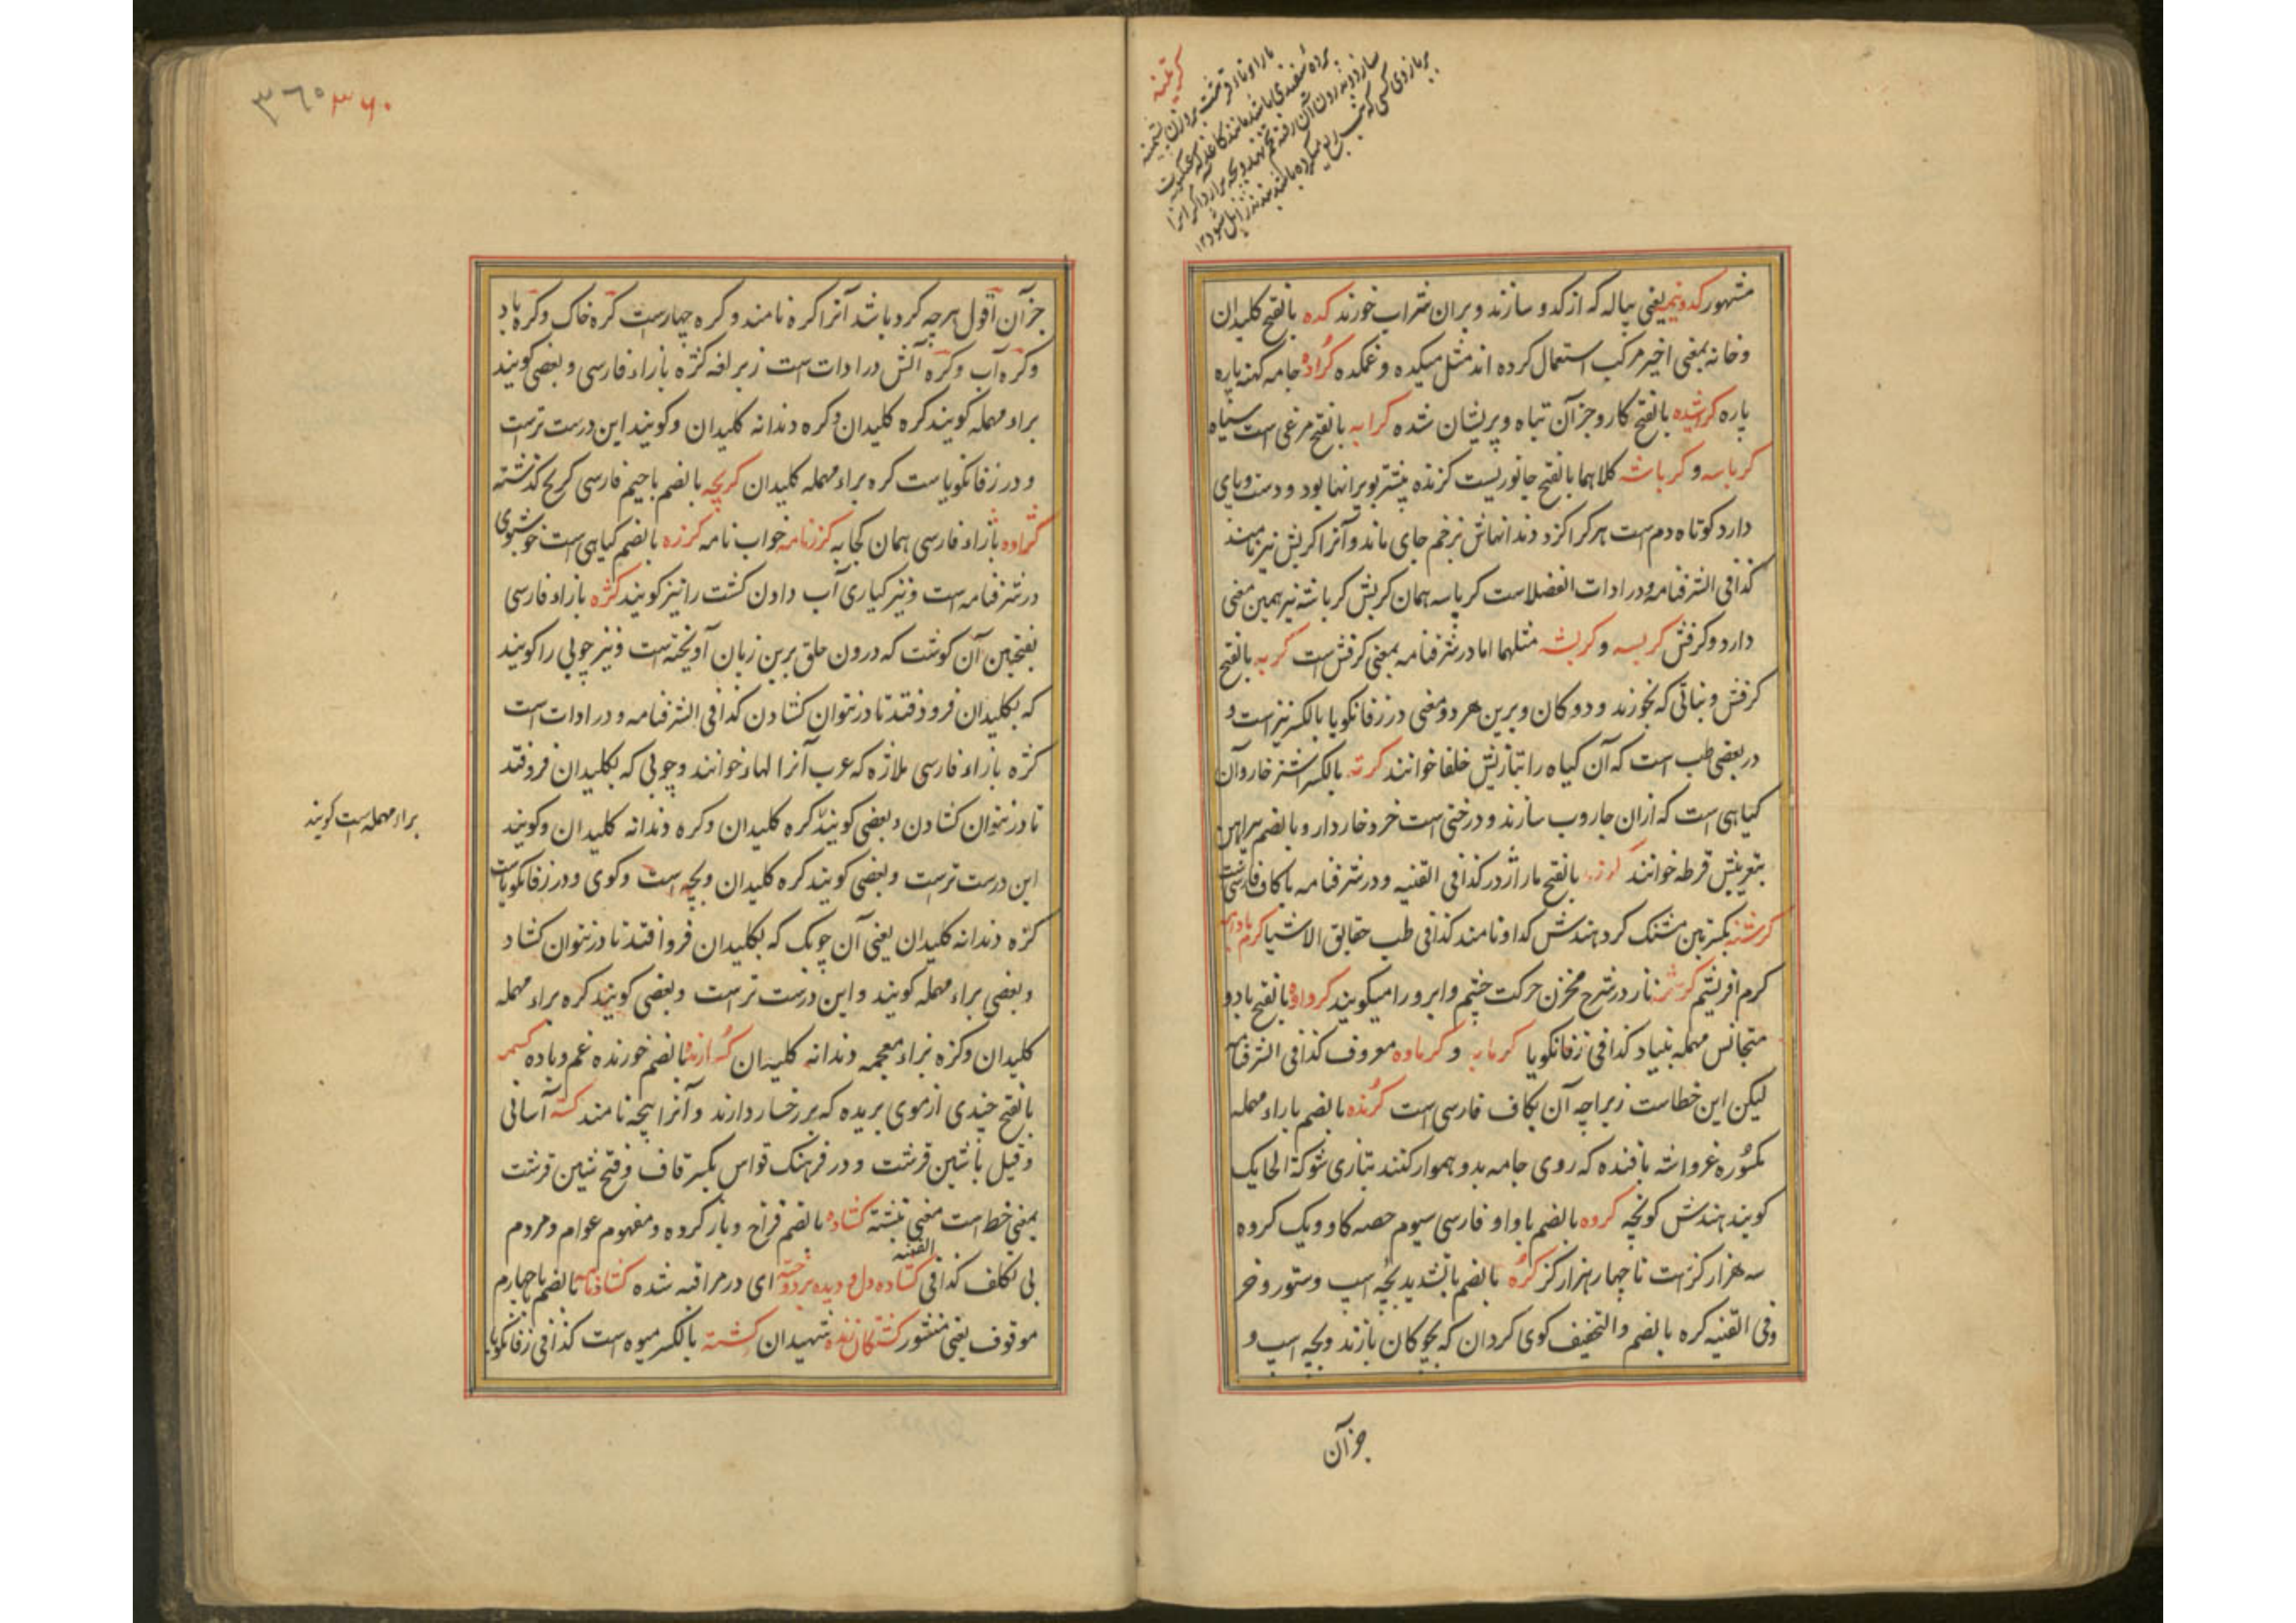 کرتینه
بارا و تاء قرشت بر وزن پشمینه
پرده سفیدی باشد مانند کاغذ که عنکبوت
سازد و درون آن رفته تخم نهد و بچه برآرد اگر آنرا
بر بازوی کسی که تب ربع میکرده باشد بندند زایل شود ۱۲
مشهور کدو نیمه یعنی پیاله که از کدو سازند و بران شراب خورند کده بالفتح کلیدان
و خانه بمعنی اخیر مرکب استعمال کرده اند مثل میکده و غمکده کراده جامه کهنه پاره
پاره کراشیده بالفتح کار و جز آن تباه و پریشان شده کرایه بالفتح مرغی است سیاه
کرباسه و کرباشه کلاهما بالفتح جانوریست کزنده بیشتر بویرانها بود و دست و پای
دارد کوتاه دم است هر کرا کزد دندانهاش بزخم جای ماند و آنرا کربش نیز نامند
کذا فی الشرفنامه و در ادات الفضلاست کرباسه همان کربش کرباشه نیز همین معنی
دارد و کرفش کربسه و کربشه مثلهما اما در شرفنامه بمعنی کرفش است کربه بالفتح
کرفش و نباتی که بخورند و دوکان و برین هر دو معنی در زفانکویا بالکسر نیز است و
در بعضی طب است که آن کیاه را بتازیش خلفا خوانند کرته بالکسر اشتر خار و آن
کیاهی است که ازان جاروب سازند و درختی است خرد خاردار و بالضم پیراهن
بتعریبش قرطه خوانند کرزه بالفتح مار اژدر کذا فی القنیه و در شرفنامه با کاف فارسی است
کرسنه بکسرتین مشنک کرد هندش کداو نامند کذا فی طب حقایق الاشیا کرم بادامه
کرم افریشم کرشمه ناز در شرح مخزن حرکت چشم و ابرو را میکویند کرواوه بالفتح با دو
متجانس مهمله بنیاد کذا فی زفانکویا کرمابه و کرماوه معروف کذا فی الشرفنامه
لیکن این خطاست زیراچه آن بکاف فارسی است کرنده بالضم با راء مهمله
مکسوره غرواشه بافنده که روی جامه بدو هموار کنند بتازی شوکة الحایک
کویند هندش کونچه کروه بالضم با واو فارسی سیوم حصه کاو و یک کروه
سه هزار کز است تا چهار هزار کز کره بالضم با تشدید بچه اسپ و ستور و خر
و فی القنیه کره بالضم و التخفیف کوی کردان که بچوکان بازند و بچه اسپ و
جز آن
۳۶۰ ۳۶۰
جز آن اقول هر چه کرد باشد آنرا کره نامند و کره چهارست کره خاک و کره باد
و کره آب و کره آتش در ادات است زیر لغه کژه با زاء فارسی و بعضی کویند
براء مهمله کویند کره کلیدان و کره دندانه کلیدان و کویند این درست ترست
و در زفانکویاست کره براء مهمله کلیدان کریچه بالضم با جیم فارسی کریج کذشته
کژاوه بازاء فارسی همان کجابه کزرنامه خواب نامه کزره بالضم کیاهی است خوشبوی
در شرفنامه است و نیز کیاری آب دادن کشت را نیز کویند کژه بازاء فارسی
بفتحتین آن کوشت که درون حلق برین زبان آویخته است و نیز چوبی را کویند
که بکلیدان فرو افتد تا در نتوان کشادن کذا فی الشرفنامه و در ادات است
کژه بازاء فارسی ملازه که عرب آنرا لهاة خوانند و چوبی که بکلیدان فرو افتد
تا در نتوان کشادن و بعضی کویند کره کلیدان و کره دندانه کلیدان و کویند
براء مهمله است کویند
این درست ترست و بعضی کویند کره کلیدان و بچه است و کوی و در زفانکویاست
کژه دندانه کلیدان یعنی آن چوبک که بکلیدان فرو افتد تا در نتوان کشاد
و بعضی براء مهمله کویند و این درست تر است و بعضی کویند کره براء مهمله
کلیدان و کزه بزاء معجمه دندانه کلیدان کسارنده بالضم خورنده غم و باده کسمه
بالفتح چندی از موی بریده که بر رخسار دارند و آنرا پیچه نامند کسه آسانی
و قیل با شین قرشت و در فرهنک قواس بکسر قاف و فتح شین قرشت
بمعنی خط است معنی نبشته کشاده بالضم فراخ و باز کرده و مفهوم عوام و مردم
بی تکلف کذا فی القنیه کشاده دل و دیده بر دوخته ای در مراقبه شده کشادنامه بالضم با چهارم
موقوف یعنی منشور کشتکان زنده شهیدان کشته بالکسر میوه است کذا فی زفانکویا